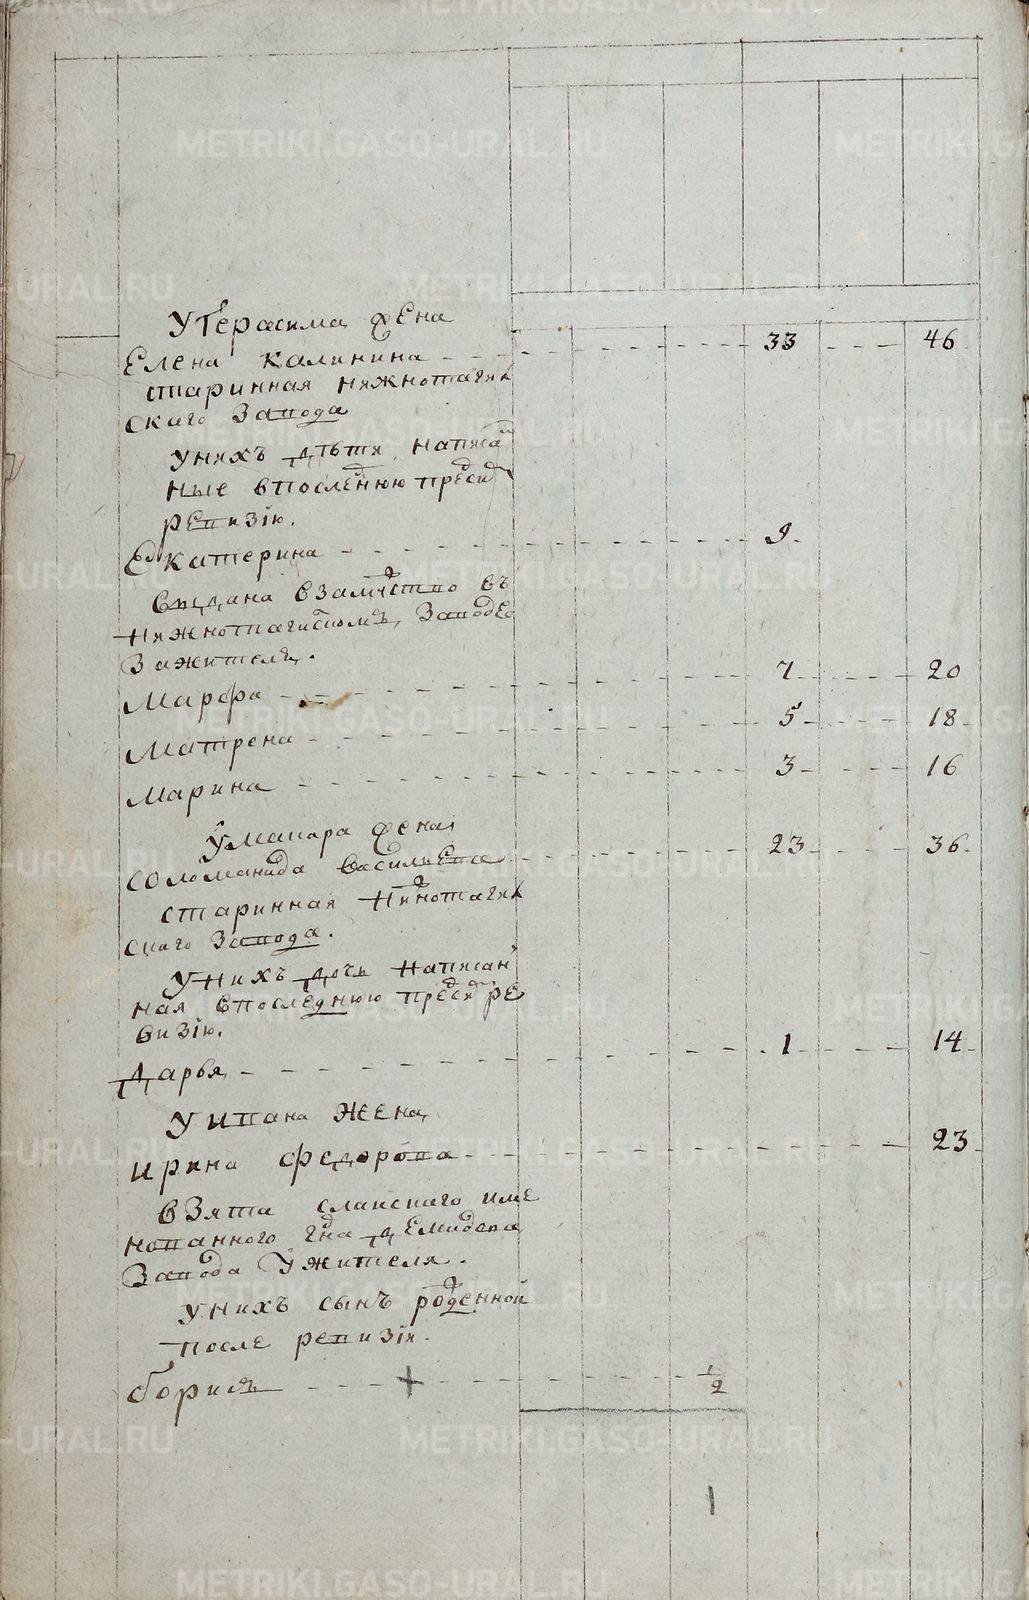 У Герасима жена
Елена Калинина 33 46
старинная нижнотагил
скаго завода
У нихъ дѣти написа
нные в последнюю пред сим
ревизiю.
Екатерина 9
выдана в замужство въ
нижнотагилскомъ заводе
за жителя.
Марфа 7 20
Матрена 5 18
Марина 3 16
У Макара жена
Соломанида Васильева 23 36
старинная нижнотагил
скаго завода.
У нихъ дочь написан
ная в последнюю пред сим ре
визiю.
Дарья 1 14
У Ивана жена
Ирина Федорова 23
взята с лаискаго име
нованного гдна Демидова
завода у жителя.
У нихъ сынъ рожденной
после ревизiи.
Борисъ + 1/2
1
METRIKI.GASO-URAL.RU